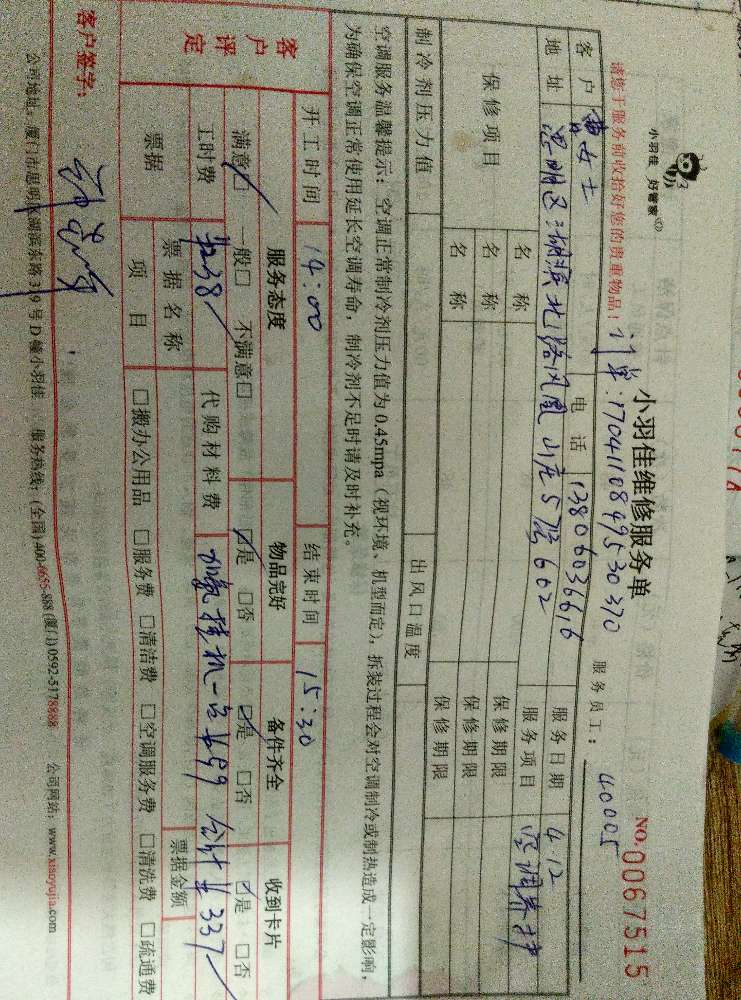 小羽佳 好管家
小羽佳维修服务单
NO. 0067515
请您于服务前收拾好您的贵重物品!
订单:1704110849530370
服务员工: 40005
客户 女士 电话 13806036616 服务日期 4.12
地址 思明区湖滨北路凤凰山庄5 602 服务项目 空调养护
保修项目 名称 保修期限
名称 保修期限
名称 保修期限
制冷剂压力值 出风口温度
空调服务温馨提示:空调正常制冷剂压力值为0.45mpa(视环境、机型而定),拆装过程会对空调制冷或制热造成一定影响,
为确保空调正常使用延长空调寿命,制冷剂不足时请及时补充。
开工时间 14:00 结束时间 15:30
客户评定 服务态度 物品完好 备件齐全 收到卡片
满意☑ 一般□ 不满意□ ☑是 □否 ☑是 □否 ☑是 □否
工时费 ¥238 代购材料费 加氟挂机一台¥99 合计¥337
票据 票据名称 票据金额
项目 □搬办公用品 □服务费 □清洁费 □空调服务费 □清洗费 □疏通费
客户签字:
公司地址:厦门市思明区湖滨东路319号D幢小羽佳 服务热线:(全国)400-6655-888 (厦门)0592-5178888 公司网站:www.xiaoyujia.com